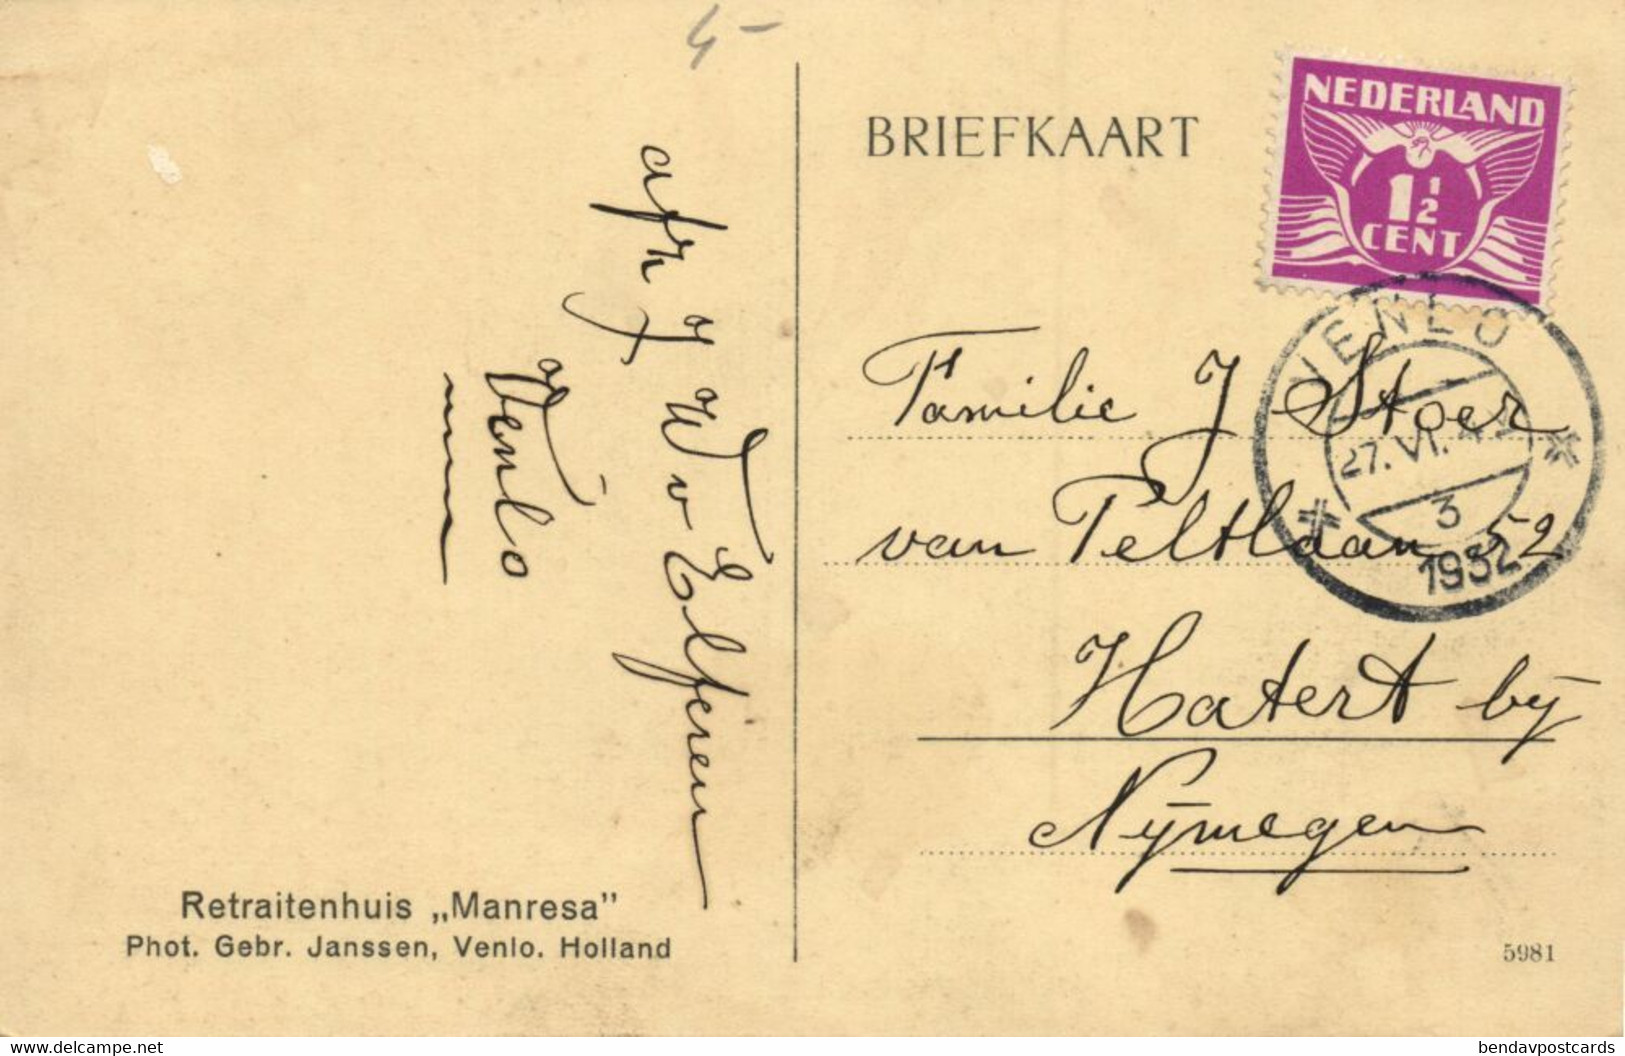 4-
BRIEFKAART
NEDERLAND
1 1/2
CENT
VENLO
27.VI.
3
1932
afz J W v Elferen
Venlo
Familie J Stoer
van Peltlaan 52
Hatert bij
Nijmegen
Retraitenhuis „Manresa"
Phot. Gebr. Janssen, Venlo. Holland
5981
www.delcampe.net
bendavpostcards